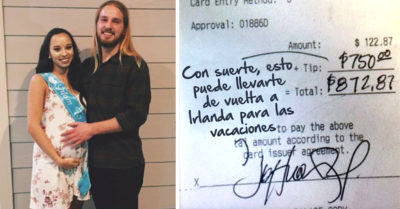 Card Entry Method:
Approval: 01886D
Amount: $ 122.87
+ Tip: $750.00
= Total: $872.87
Con suerte, esto
puede llevarte
de vuelta a
Irlanda para las
vacaciones
to pay the above
amount according to the
card issuer agreement.
X